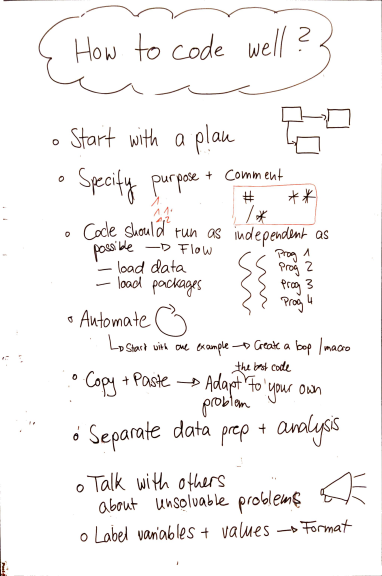 How to code well?
Start with a plan
Specify purpose + comment
# **
/*
Code should run as independent as
possible → Flow
Prog 1
— load data
Prog 2
— load packages
Prog 3
Prog 4
Automate
↳ Start with one example → Create a loop / macro
the best code
Copy + Paste → Adapt to your own
problem
Separate data prep + analysis
Talk with others
about unsolvable problems
Label variables + values → Format